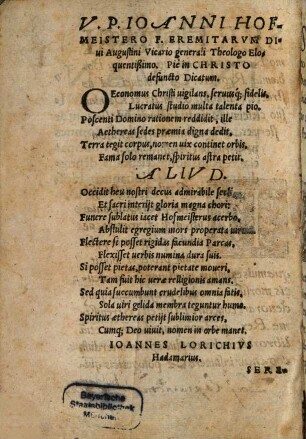 V. P. IOANNI HOF-
MEISTERO F. EREMITARVM DI-
ui Augustini Vicario generali Theologo Elo
quentißimo. Piè in CHRISTO
defuncto Dicatum.
OEconomus Christi uigilans, seruusq́; fidelis,
Lucratus studio multa talenta pio.
Poscenti Domino rationem reddidit, ille
Aethereas sedes præmia digna dedit.
Terra tegit corpus, nomen uix continet orbis,
Fama solo remanet, spiritus astra petit.
ALIVD.
Occidit heu nostri decus admirabile secli,
Et sacri interijt gloria magna chori:
Funere sublatus iacet Hofmeisterus acerbo,
Abstulit egregium mors properata uirum.
Flectere si posset rigidas facundia Parcas,
Flexisset uerbis numina dura suis.
Si posset pietas, poterant pietate moueri,
Tam fuit hic uerae relligionis amans.
Sed quia succumbunt crudelibus omnia fatis,
Sola uiri gelida membra teguntur humo.
Spiritus æthereas petijt sublimior arces,
Cumq́; Deo uiuit, nomen in orbe manet.
IOANNES LORICHIVS
Hadamarius.
SERE-
Bayerische
Staatsbibliothek
München